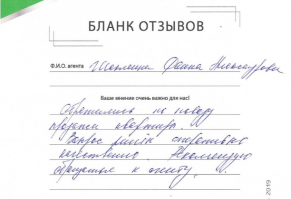 БЛАНК ОТЗЫВОВ
Ф.И.О. агента Шамшина Фаина Николаевна
Ваше мнение очень важно для нас!
Обратились по поводу
продажи квартиры.
Вопрос решён оперативно
качественно. Рекомендую
обращаться к агенту.
2019